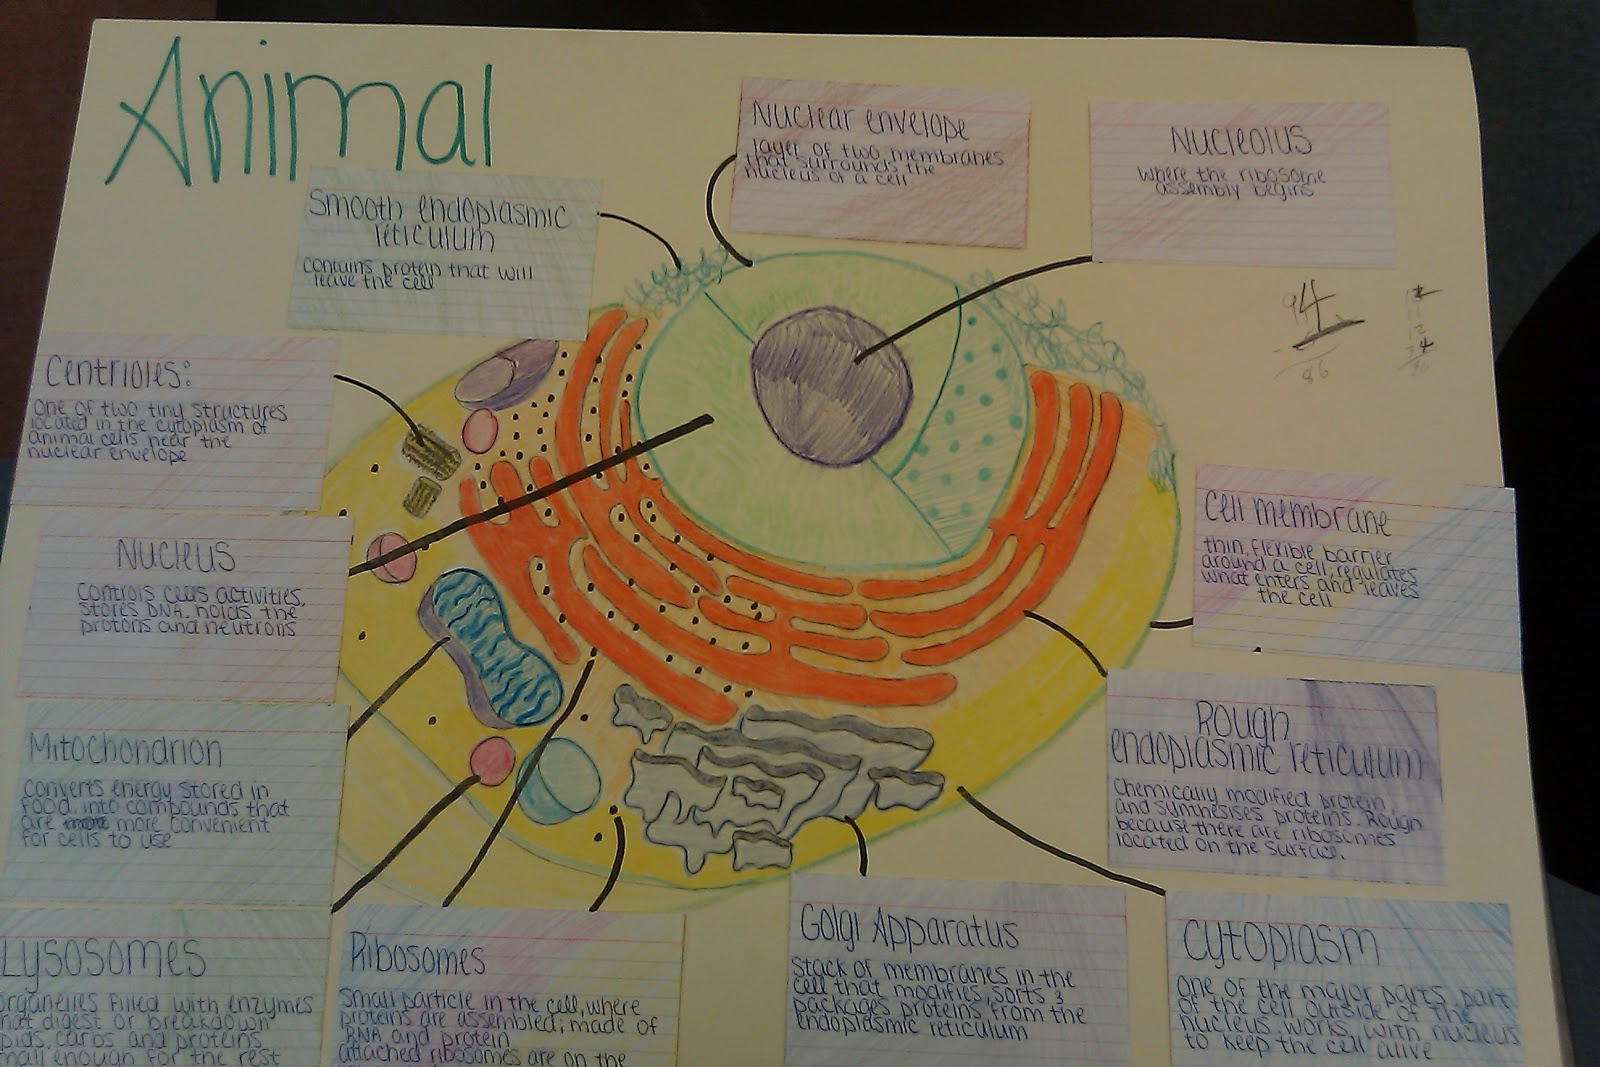 Animal
Nuclear envelope
layer of two membranes
that surrounds the
nucleus of a cell
Nucleolus
where the ribosome
assembly begins
Smooth endoplasmic
reticulum
contains protein that will
leave the cell
94
86
Centrioles:
one of two tiny structures
located in the cytoplasm of
animal cells near the
nuclear envelope
Cell membrane
thin, flexible barrier
around a cell, regulates
what enters and leaves
the cell
Nucleus
Controls cells activities,
stores DNA, holds the
protons and neutrons
Rough
endoplasmic reticulum
Chemically modified protein
and synthesises proteins. Rough
because there are ribosomes
located on the surface.
Mitochondrion
converts energy stored in
food into compounds that
are more convenient
for cells to use
Lysosomes
organelles filled with enzymes
that digest or breakdown
lipids, carbs and proteins
small enough for the rest
Ribosomes
Small particle in the cell, where
proteins are assembled; made of
RNA and protein
attached ribosomes are on the
Golgi Apparatus
Stack of membranes in the
cell that modifies, sorts &
packages proteins from the
endoplasmic reticulum
Cytoplasm
one of the major parts, part
of the cell outside of the
nucleus, works with nucleus
to keep the cell alive